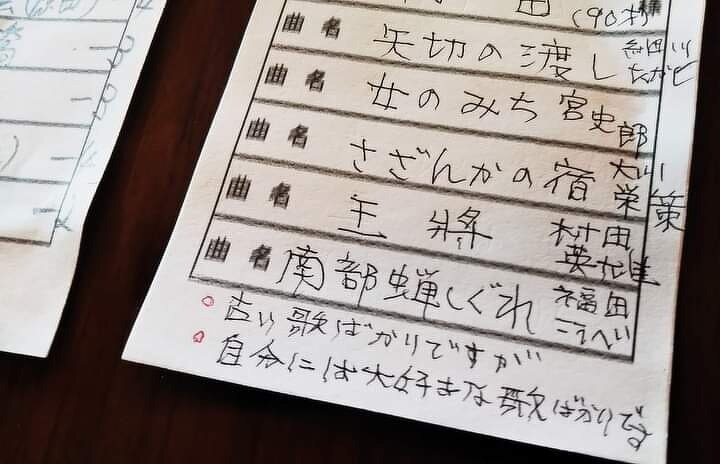 田 (90才) 様
曲名 矢切の渡し 細川たかし
曲名 女のみち 宮史郎
曲名 さざんかの宿 大川栄策
曲名 王将 村田英雄
曲名 南部蝉しぐれ 福田こうへい
古い歌ばかりですが
自分には大好きな歌ばかりです